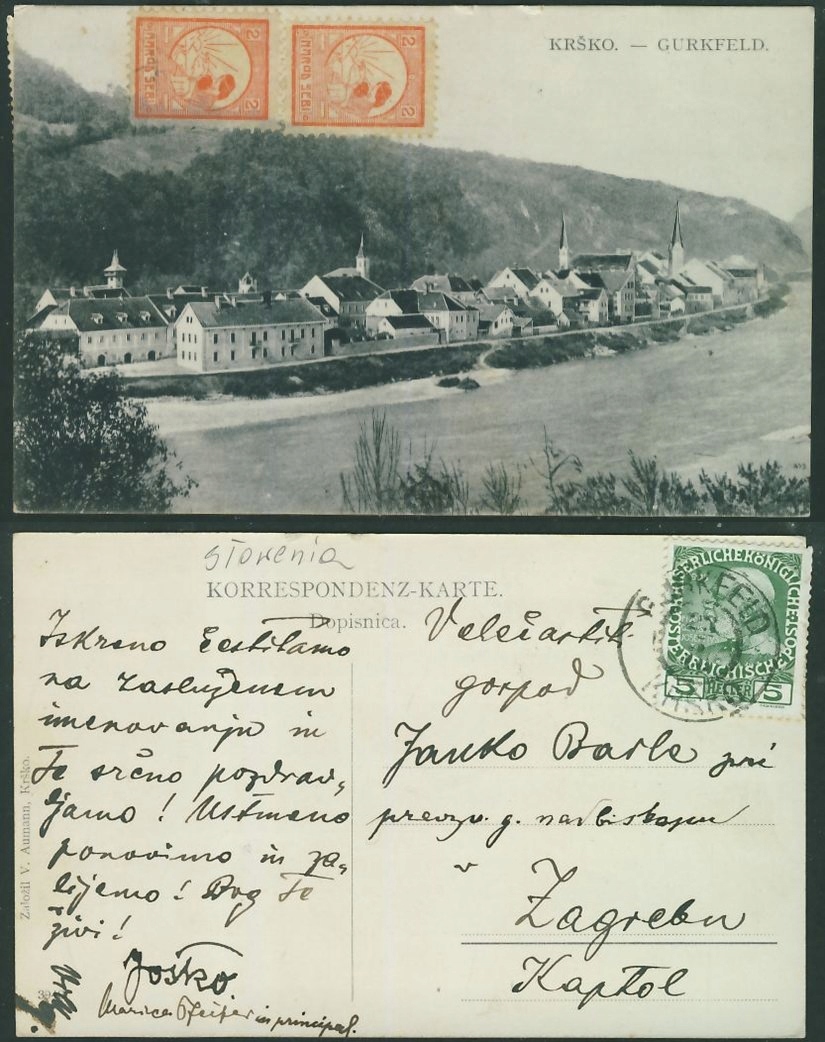 KRŠKO. — GURKFELD.
2 2
NAROD SEBI
2 2
NAROD SEBI
Slovenia
KORRESPONDENZ-KARTE.
Dopisnica.
Iskreno čestitamo
na zasluženem
imenovanju in
Te srčno pozdrav„
ljamo! Ustmeno
ponovimo in za„
lijemo! Bog Te
živi!
Joško
Marica Pfeifer in principal.
Velečastit.
gospod
Janko Barlè pri
prevzv. g. nadbiskupu
v
Zagrebu
Kaptol
GURKFELD
KRŠKO
KAISERLICHEKÖNIGLICHE
ÖSTERREICHISCHE POST
5 HELLER 5
Založil V. Aumann, Krško.